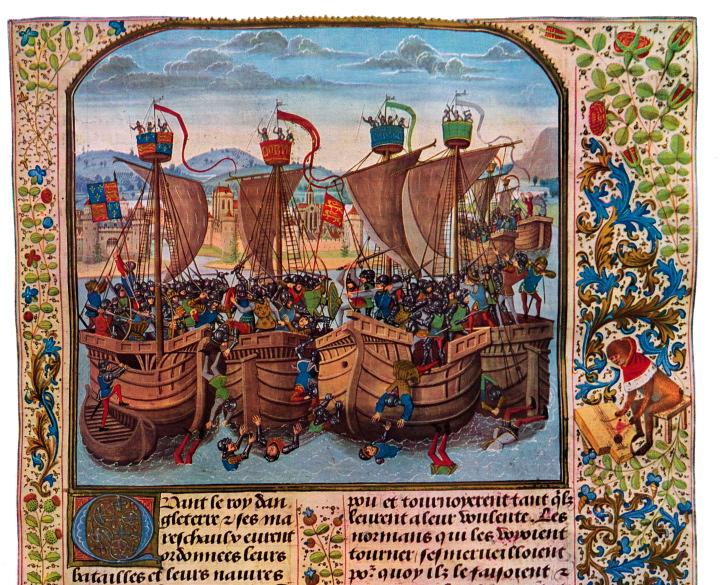 Quant le roy dan
gleterre et ses ma
reschaulx eurent
ordonnees leurs
batailles et leurs navires
pou et tournoyerent tant qlz
leurent a leur voulente. Les
normans qui les veoient
tourner sesmerveilloient
por quoy ilz le faisoient et